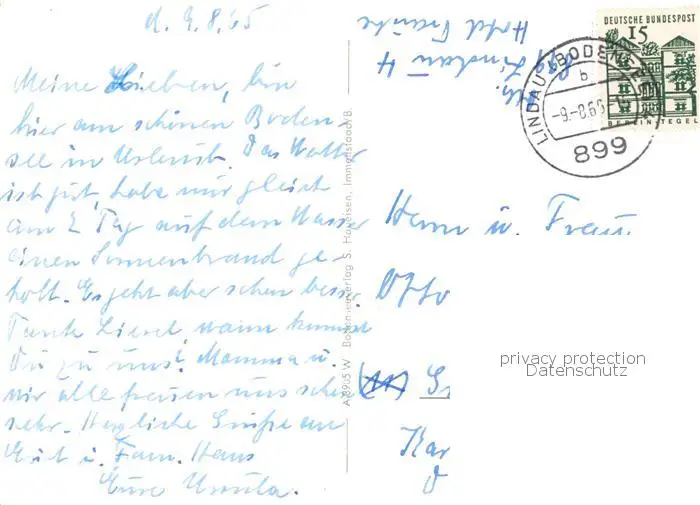 d. 9.8.65
Meine Lieben, bin
hier am schönen Boden-
see in Urlaub. Das Wetter
ist gut, habe mir gleich
am 2. Tag auf dem Wasser
einen Sonnenbrand ge-
holt. Es geht aber schon besser.
Tante Liesel, wann kommst
Du zu uns? Mamma u.
wir alle freuen uns schon
sehr. Herzliche Grüße an
u. Fam. Hans
Eure Ursula.
899 Lindau
Hotel
DEUTSCHE BUNDESPOST
15
BERLIN-TEGEL
LINDAU (BODENSEE)
b
-9.-8.65
899
Herrn u. Frau
Otto
Kar
privacy protection
Datenschutz